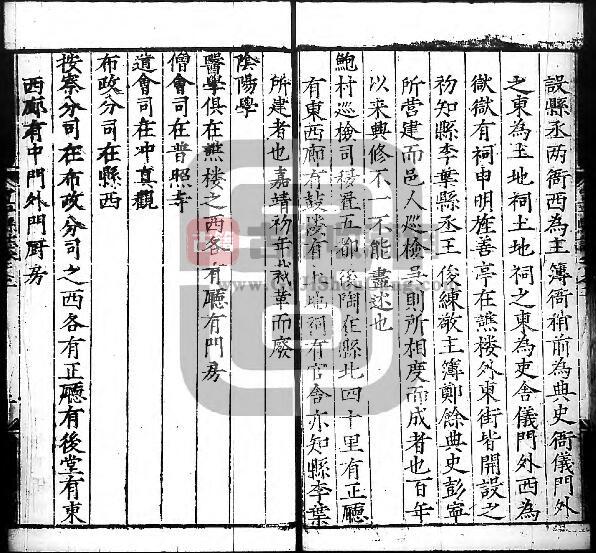 設縣丞兩衙西為主簿衙稍前為典史衙儀門外
之東為土地祠土地祠之東為吏舍儀門外西為
獄獄有祠申明旌善亭在譙樓外東街皆開設之
初知縣李葉縣丞王俊練敬主簿鄭餘典史彭寧
所营建而邑人巡檢吳則所相度而成者也百年
以来興修不一不能盡述也
鮑村巡檢司後陶在縣北四十里有正廳
有東西廊有鼓楼有土地祠有官舍亦知縣李葉
所建者也嘉靖初年裁革而廢
陰陽學
醫學俱在譙楼之西各有廳有門房
僧會司在普照寺
道會司在冲真觀
布政分司在縣西
按察分司在布政分司之西各有正廳有後堂有東
西廊有中門外門厨房